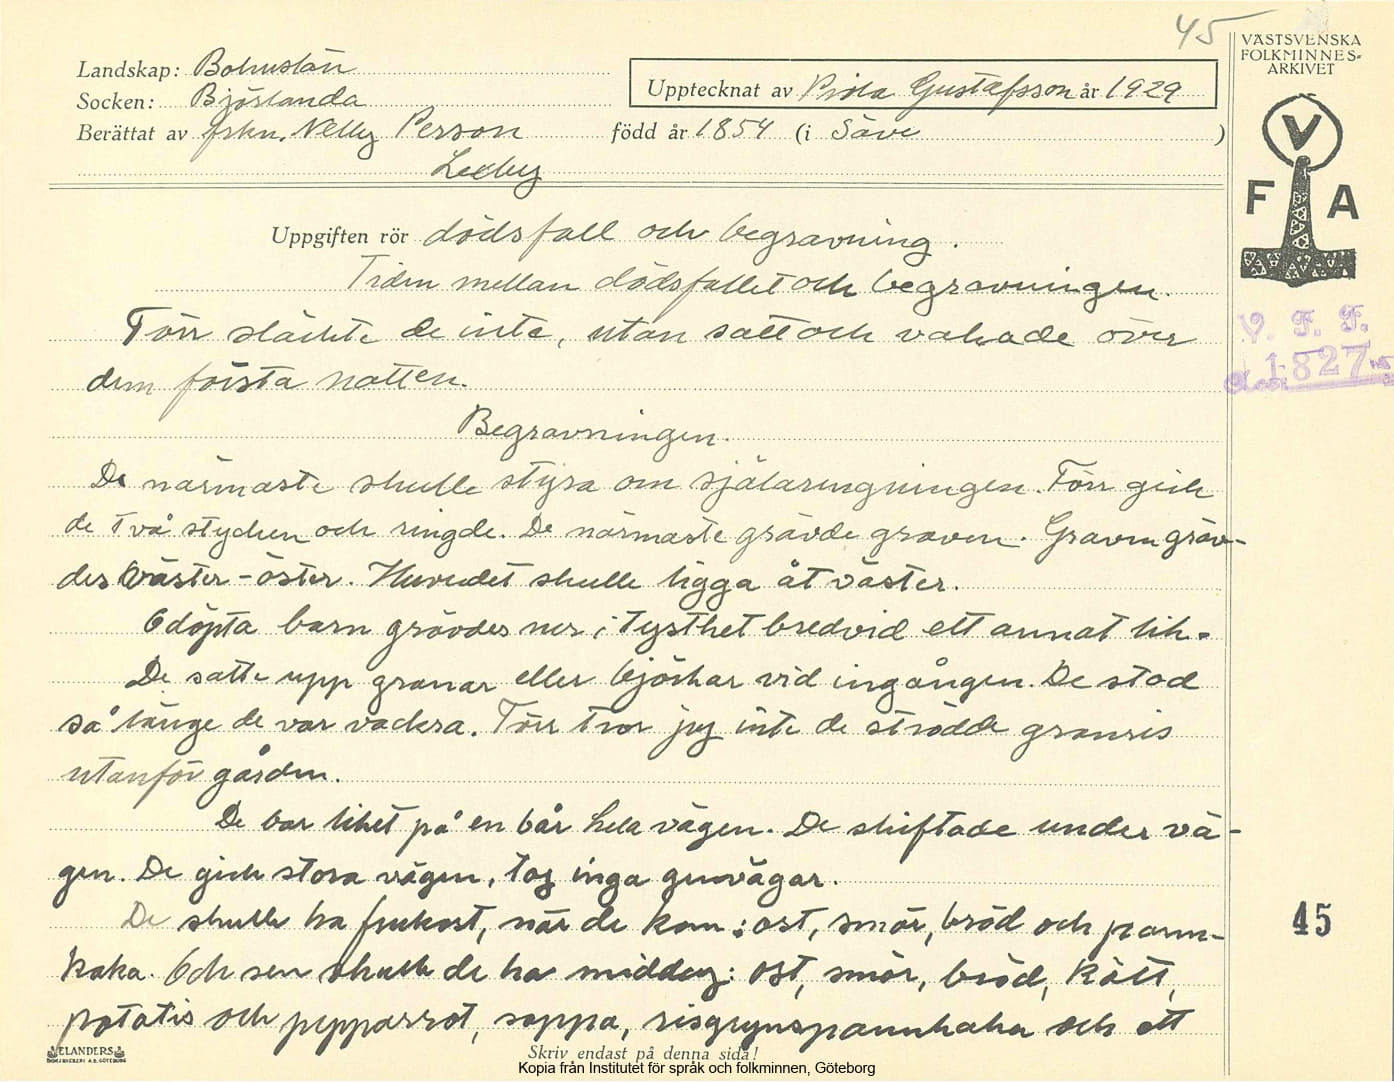 45
VÄSTSVENSKA
FOLKMINNES-
ARKIVET
Landskap: Bohuslän
Socken: Björlanda
Upptecknat av Gustafsson år 1929
Berättat av frkn. Nelly Person född år 1854 (i Säve )
Leeby
V
F A
Uppgiften rör dödsfall och begravning.
Tiden mellan dödsfallet och begravningen.
V. F. F.
1827
Förr släckte de inte, utan satt och vakade över
dem första natten.
Begravningen.
De närmaste skulle styra om själaringningen. Förr gick
de två stycken och ringde. De närmaste grävde graven. Graven gräv-
des väster-öster. Huvudet skulle ligga åt väster.
Odöpta barn grävdes ner i tysthet bredvid ett annat lik.
De satte upp granar eller björkar vid ingången. De stod
så länge de var vackra. Förr tror jag inte de strödde granris
utanför gården.
De bar liket på en bår hela vägen. De skiftade under vä-
gen. De gick stora vägen, tog inga genvägar.
De skulle ha frukost, när de kom: ost, smör, bröd och pann-
kaka. Och sen skulle de ha middag: ost, smör, bröd, kött,
potatis och pepparrot, soppa, risgrynspannkaka och ett
45
ELANDERS
BOKTRYCKERI A.B. GÖTEBORG
Skriv endast på denna sida!
Kopia från Institutet för språk och folkminnen, Göteborg